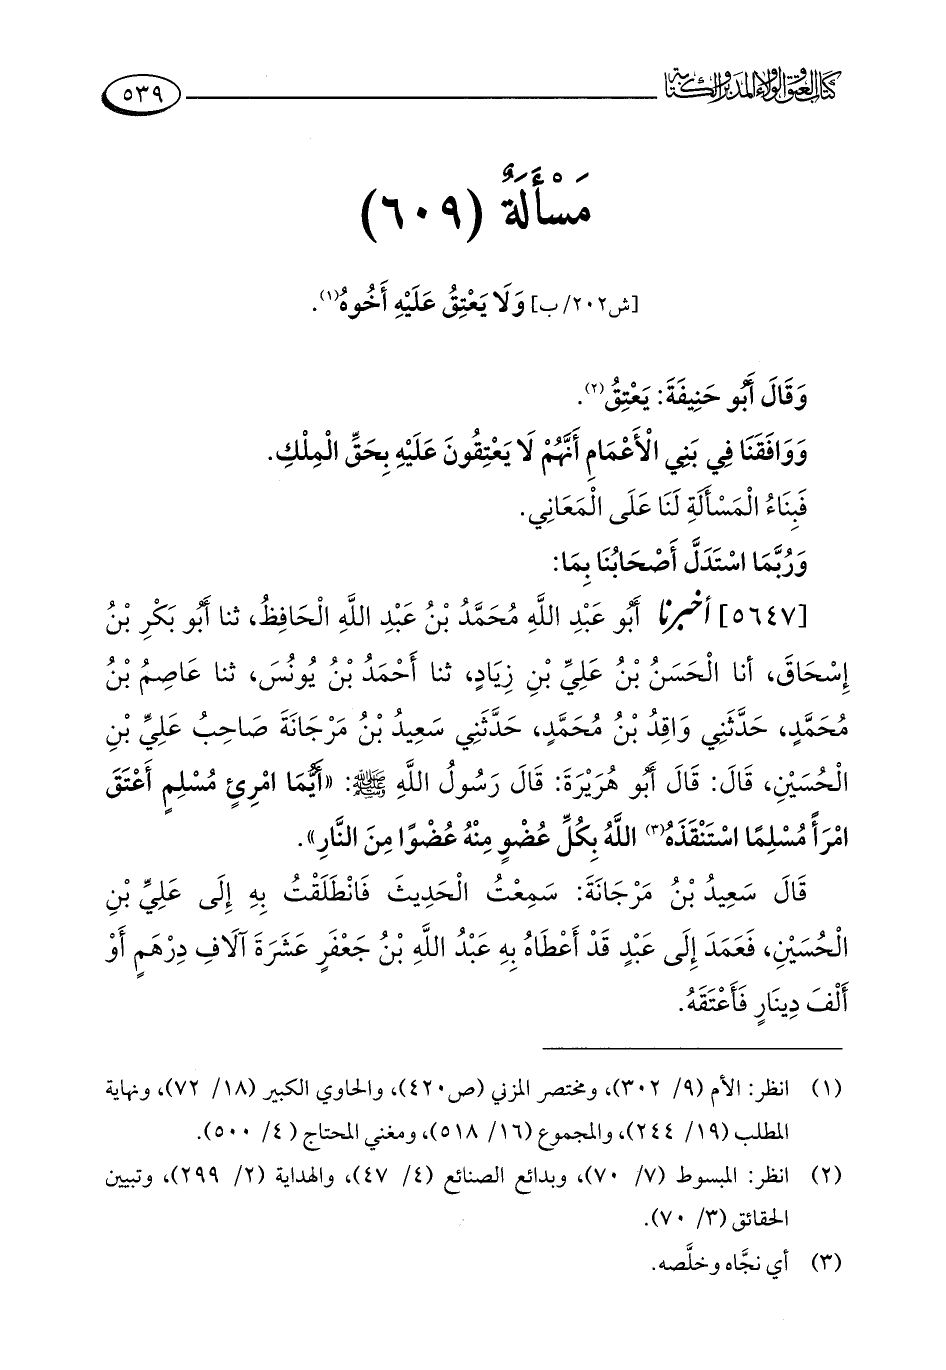 كتاب العتق والولاء والمدبر والمكاتبة
٥٣٩
مَسْأَلَةٌ (٦٠٩)
[ش٢٠٢/ ب] وَلَا يَعْتِقُ عَلَيْهِ أَخُوهُ(١).
وَقَالَ أَبُو حَنِيفَةَ: يَعْتِقُ(٢).
وَوَافَقَنَا فِي بَنِي الْأَعْمَامِ أَنَّهُمْ لَا يَعْتِقُونَ عَلَيْهِ بِحَقِّ الْمِلْكِ.
فَبِنَاءُ الْمَسْأَلَةِ لَنَا عَلَى الْمَعَانِي.
وَرُبَّمَا اسْتَدَلَّ أَصْحَابُنَا بِمَا:
[٥٦٤٧] أخبرنا أَبُو عَبْدِ اللَّهِ مُحَمَّدُ بْنُ عَبْدِ اللَّهِ الْحَافِظُ، ثنا أَبُو بَكْرِ بْنُ
إِسْحَاقَ، أنا الْحَسَنُ بْنُ عَلِيِّ بْنِ زِيَادٍ، ثنا أَحْمَدُ بْنُ يُونُسَ، ثنا عَاصِمُ بْنُ
مُحَمَّدٍ، حَدَّثَنِي وَاقِدُ بْنُ مُحَمَّدٍ، حَدَّثَنِي سَعِيدُ بْنُ مَرْجَانَةَ صَاحِبُ عَلِيِّ بْنِ
الْحُسَيْنِ، قَالَ: قَالَ أَبُو هُرَيْرَةَ: قَالَ رَسُولُ اللَّهِ ﷺ: «أَيُّمَا امْرِئٍ مُسْلِمٍ أَعْتَقَ
امْرَأً مُسْلِمًا اسْتَنْقَذَهُ(٣) اللَّهُ بِكُلِّ عُضْوٍ مِنْهُ عُضْوًا مِنَ النَّارِ».
قَالَ سَعِيدُ بْنُ مَرْجَانَةَ: سَمِعْتُ الْحَدِيثَ فَانْطَلَقْتُ بِهِ إِلَى عَلِيِّ بْنِ
الْحُسَيْنِ، فَعَمَدَ إِلَى عَبْدٍ قَدْ أَعْطَاهُ بِهِ عَبْدُ اللَّهِ بْنُ جَعْفَرٍ عَشَرَةَ آلَافِ دِرْهَمٍ أَوْ
أَلْفَ دِينَارٍ فَأَعْتَقَهُ.
(١) انظر: الأم (٩/ ٣٠٢)، ومختصر المزني (ص٤٢٠)، والحاوي الكبير (١٨/ ٧٢)، ونهاية
المطلب (١٩/ ٢٤٤)، والمجموع (١٦/ ٥١٨)، ومغني المحتاج (٤/ ٥٠٠).
(٢) انظر: المبسوط (٧/ ٧٠)، وبدائع الصنائع (٤/ ٤٧)، والهداية (٢/ ٢٩٩)، وتبيين
الحقائق (٣/ ٧٠).
(٣) أي نجَّاه وخلَّصه.